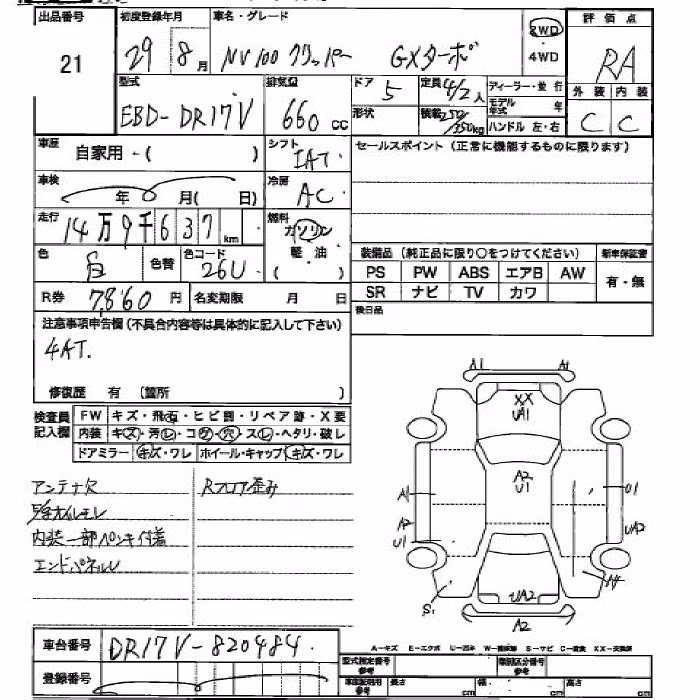 出品番号 21
初度登録年月 29 8月
車名・グレード NV100 クリッパー GXターボ
2WD
・
4WD
評価点 RA
外装 内装
C C
型式 EBD-DR17V
排気量 660cc
ドア 5
定員 4/2人
形状
積載 250/350kg
ディーラー・並行
モデル年式 年
ハンドル 左・右
車歴 自家用・( )
シフト IAT
セールスポイント(正常に機能するものに限ります)
車検 年 月( 日)
冷房 AC
走行 14万9千637km
燃料 ガソリン
軽・油
( )
色 白
色替
色コード 26U
R券 7,860円
名変期限 月 日
装備品(純正品に限り○をつけてください)
新車保証書
PS PW ABS エアB AW
SR ナビ TV カワ
有・無
後日品
注意事項申告欄(不具合内容等は具体的に記入して下さい)
4AT.
修復歴 有 〔箇所 〕
検査員記入欄
FW キズ・飛石・ヒビ割・リペア跡・X要
内装 キズ・汚レ・コゲ・穴・スレ・ヘタリ・破レ
ドアミラー キズ・ワレ ホイール・キャップ キズ・ワレ
アンテナ欠
Rフロア歪み
内装一部ペンキ付着
エンドパネルU
A1 A1
XX
UA1
A2
U1
A1
A2
U1
U1
UA2
S1
UA2
A2
車台番号 DR17V-820484
登録番号
A-キズ E-エクボ U-凹み W-補修跡 S-サビ C-腐食 XX-交換済
型式指定番号 参考
類別区分番号 参考
車庫証明用 参考
長さ cm
幅 cm
高さ cm